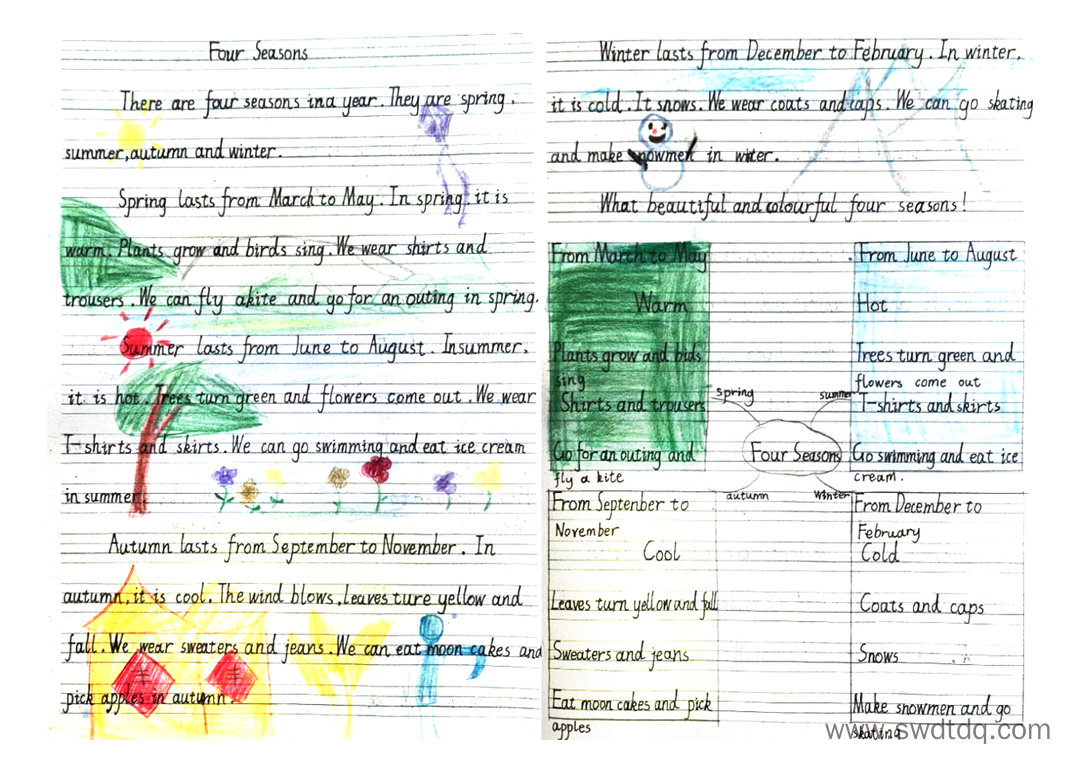 Four Seasons
There are four seasons in a year. They are spring,
summer, autumn and winter.
Spring lasts from March to May. In spring, it is
warm. Plants grow and birds sing. We wear shirts and
trousers. We can fly a kite and go for an outing in spring.
Summer lasts from June to August. In summer,
it is hot. Trees turn green and flowers come out. We wear
T-shirts and skirts. We can go swimming and eat ice cream
in summer.
Autumn lasts from September to November. In
autumn, it is cool. The wind blows, leaves ture yellow and
fall. We wear sweaters and jeans. We can eat moon cakes and
pick apples in autumn.
Winter lasts from December to February. In winter,
it is cold. It snows. We wear coats and caps. We can go skating
and make snowmen in winter.
What beautiful and colourful four seasons!
From March to May
Warm
Plants grow and bids
sing
Shirts and trousers
Go for an outing and
fly a kite
From June to August
Hot
Trees turn green and
flowers come out
T-shirts and skirts
Go swimming and eat ice
cream.
spring
summer
Four Seasons
autumn
Winter
From Septenber to
November
Cool
Leaves turn yellow and fall
Sweaters and jeans
Eat moon cakes and pick
apples
From December to
February
Cold
Coats and caps
Snows
Make snowmen and go
skating
www.swdtdq.com